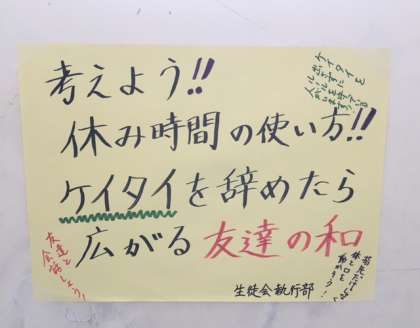 考えよう!!
休み時間の使い方!!
ケイタイを辞めたら
広がる友達の和
生徒会執行部
ケイタイを
友達と
会話しよう!